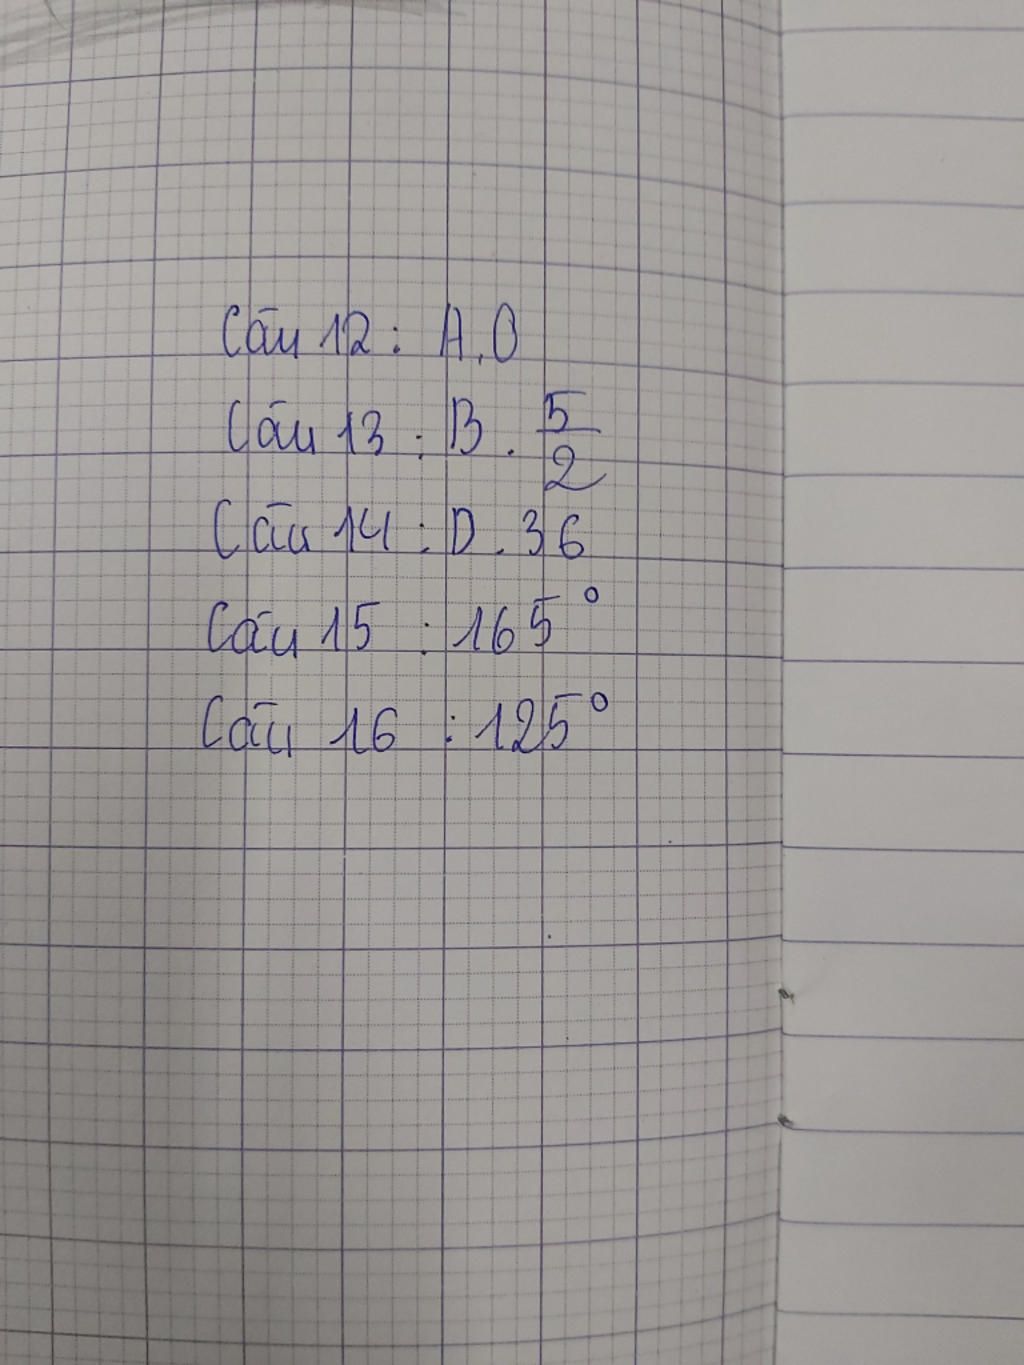 Câu 12 : A. 0
Câu 13 : B. 5/2
Câu 14 : D. 36
Câu 15 : 165°
Câu 16 : 125°